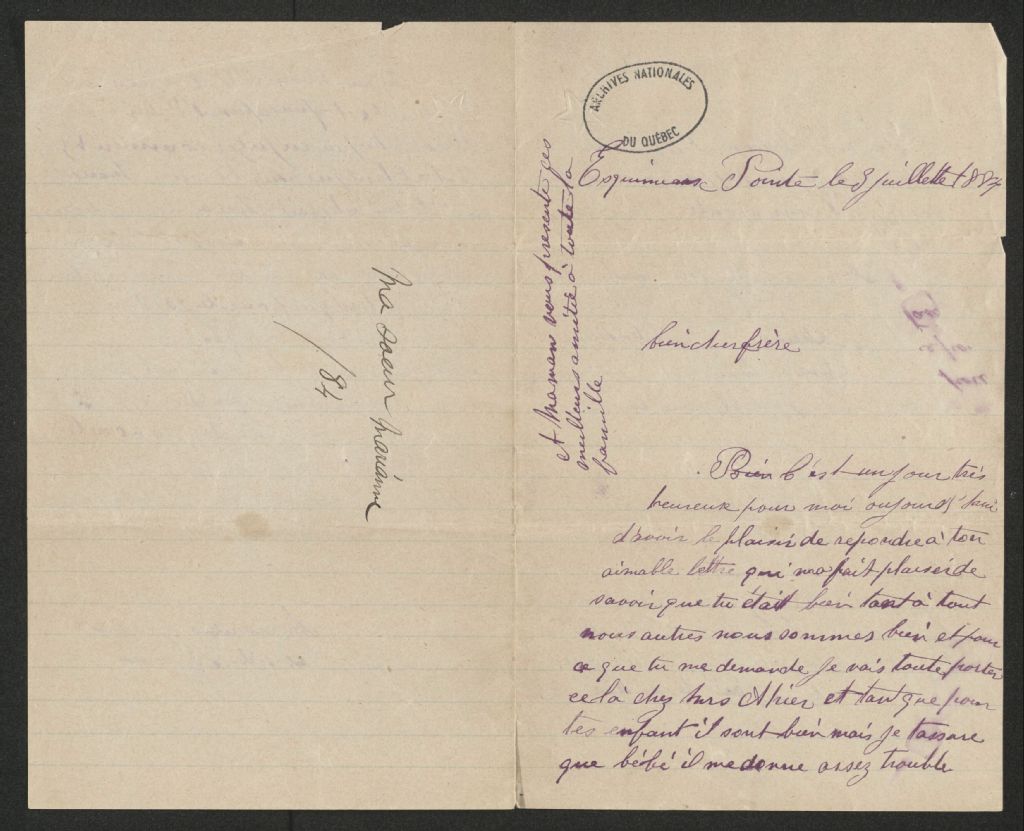 ARCHIVES NATIONALES
DU QUÉBEC
Esquimeaux Pointe le 8 juillette 1884
bien cher frère
Bien C'est un jour très
heureux pour moi aujourd'hui
d'avoir le plaisir de repondre à ton
aimable lettre qui ma fait plaisir de
savoir que tu était bien tant à tout
nous autres nous sommes bien et pour
ce que tu me demande je vais toute porter
celà chez et tant que pour
tes enfant il sont bien mais je tassure
que bébé il me donne assez trouble
et Maman vous presente ces
meilleurs amitié à toute la
famille
Ma soeur Marianne
/84